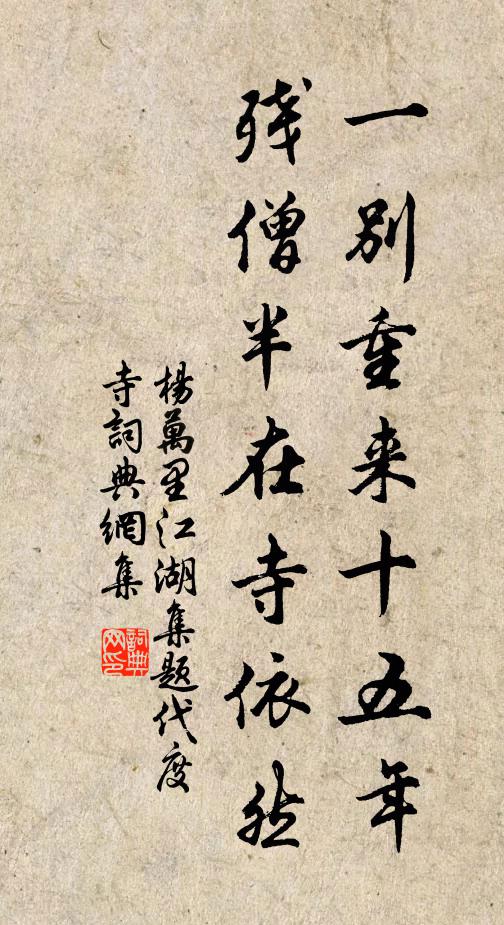 一别重来十五年
残僧半在寺依然
楊萬里江湖集題代度
寺詞典網集
詞典网印